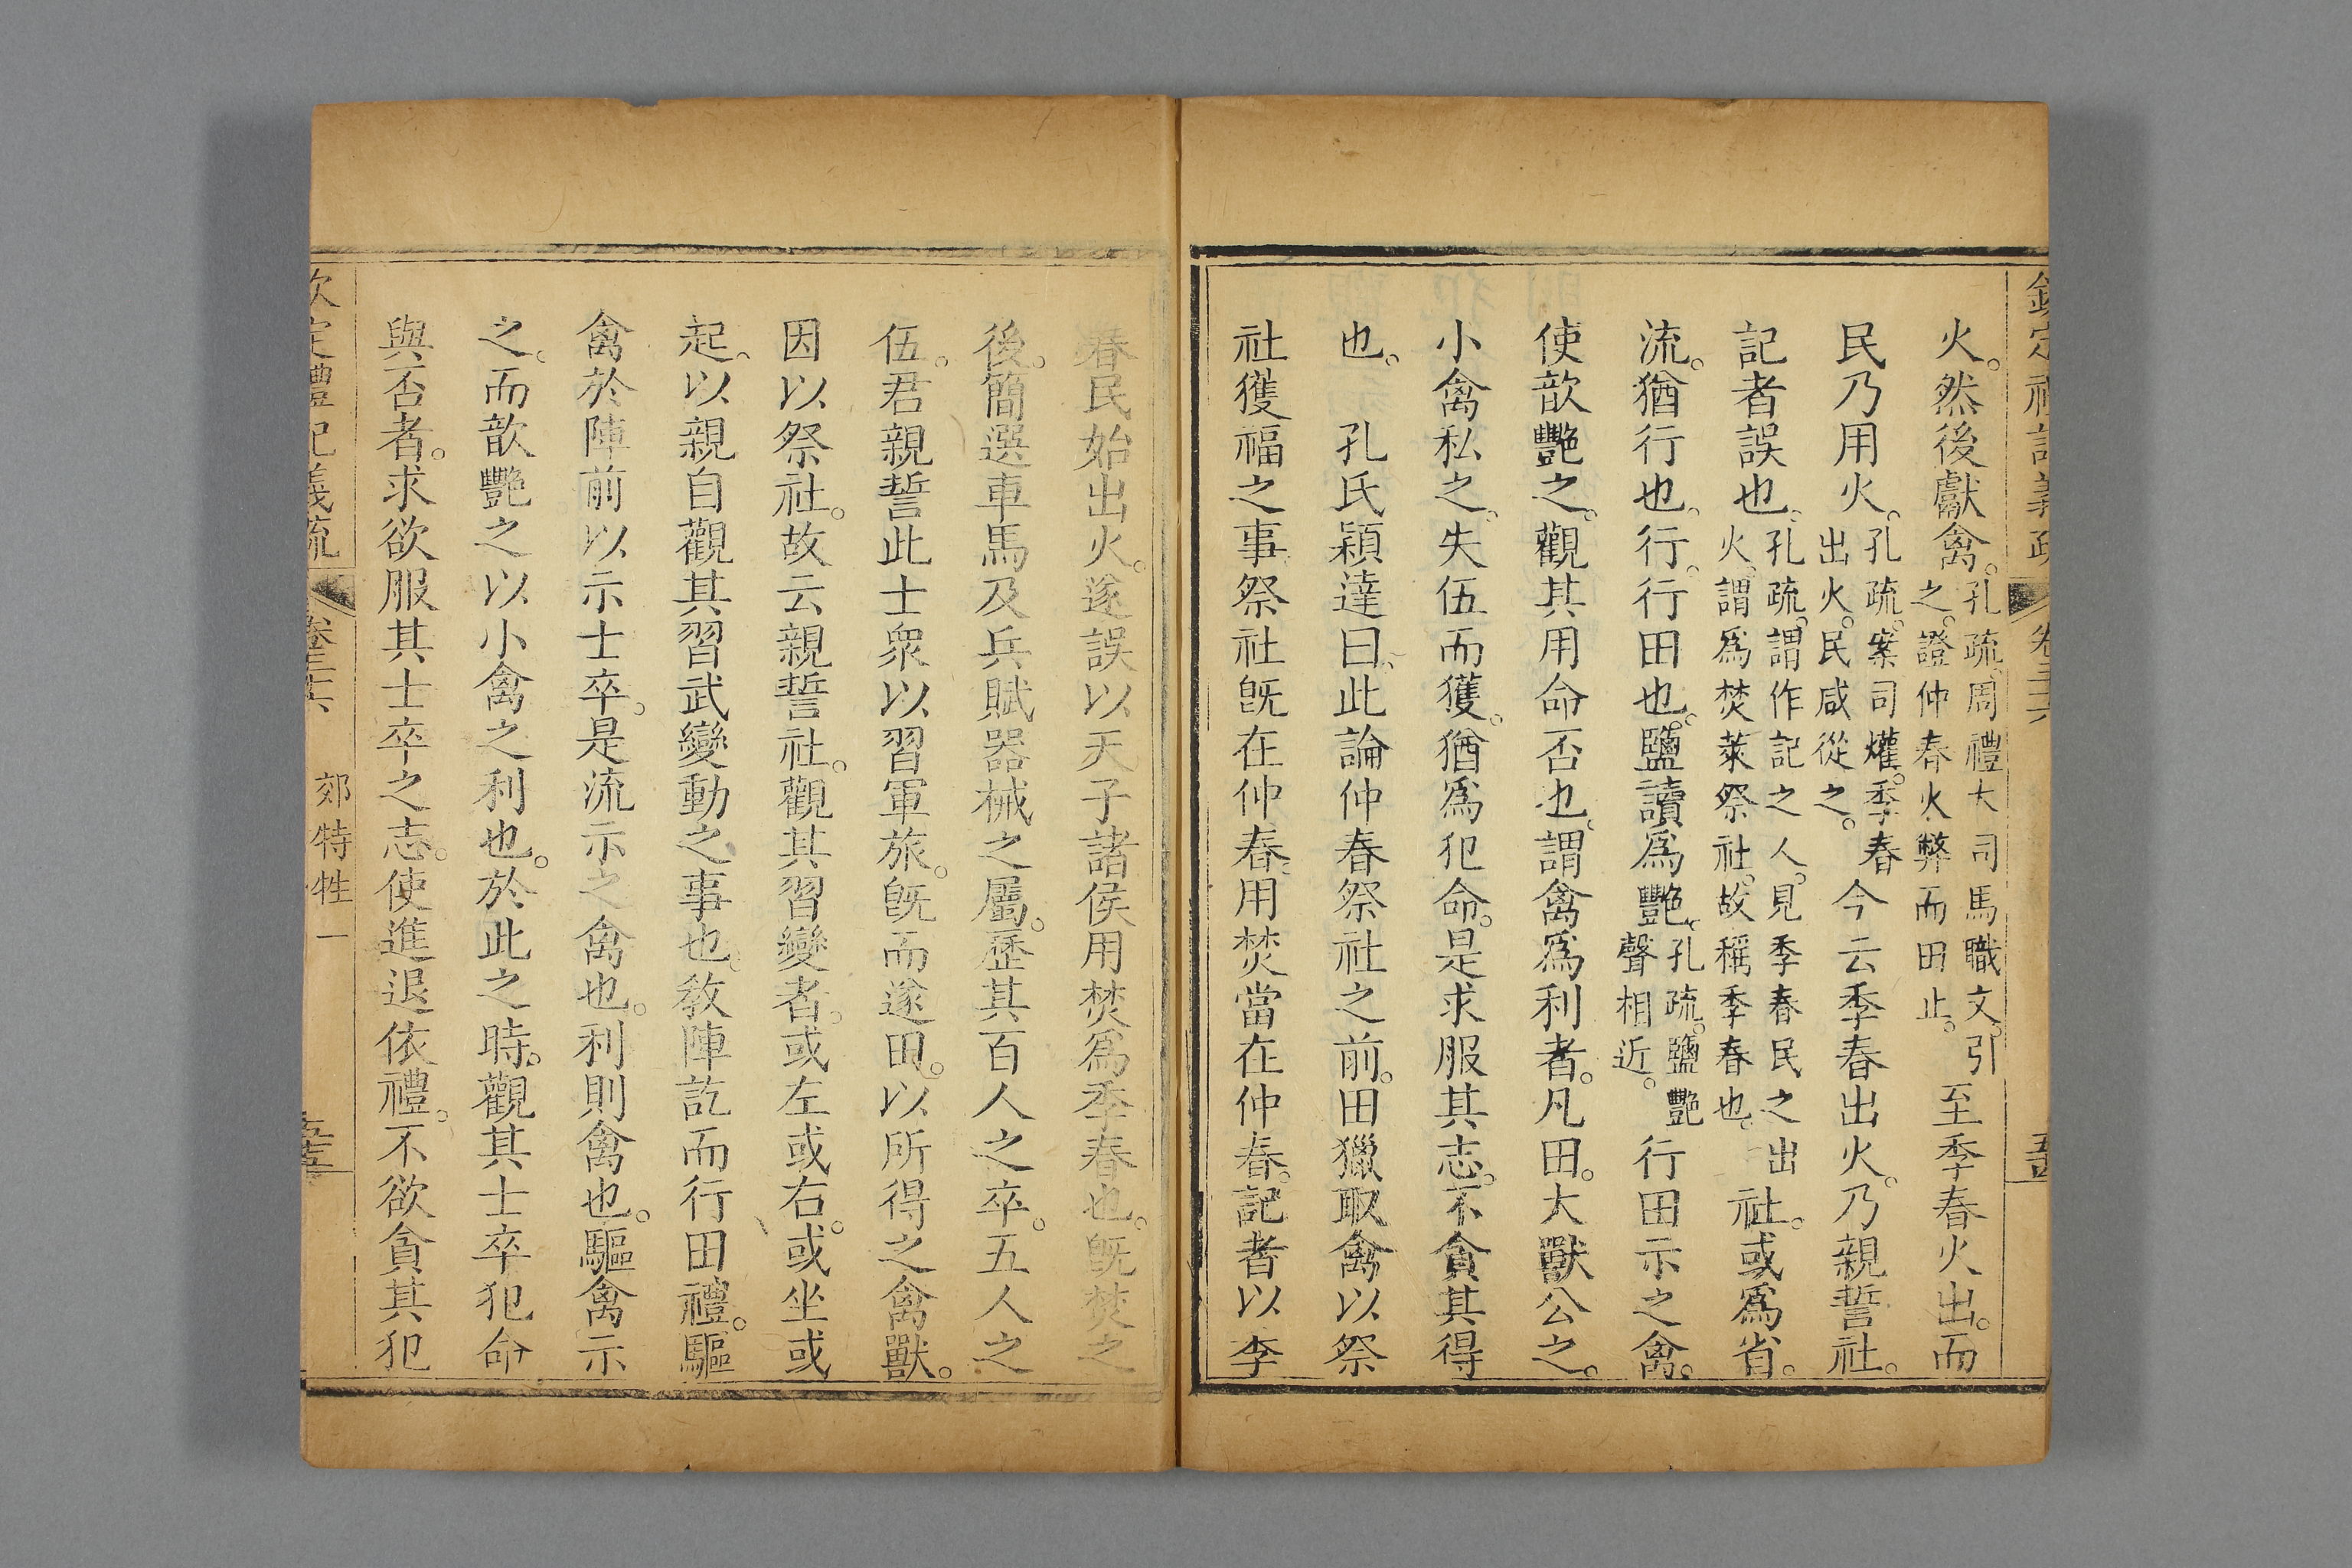 欽定禮記義疏 卷三十六
火。然後獻禽。孔疏。周禮大司馬職文。引之。證仲春火弊而田止。至季春火出。而
民乃用火。孔疏。案司爟。季春出火。民咸從之。今云季春出火。乃親誓社。
記者誤也。孔疏。謂作記之人。見季春民之出火。謂爲焚萊祭社。故稱季春也。社。或爲省。
流。猶行也。行。行田也。鹽讀爲豔。孔疏。鹽豔聲相近。行田示之禽。
使歆豔之。觀其用命否也。謂禽爲利者。凡田。大獸公之。
小禽私之。失伍而獲。猶爲犯命。是求服其志。不貪其得
也。 孔氏穎達曰。此論仲春祭社之前。田獵取禽以祭
社獲福之事祭社旣在仲春。用焚當在仲春。記者以季
春民始出火。遂誤以天子諸侯用焚爲季春也。旣焚之
後。簡選車馬及兵賦器械之屬。歷其百人之卒。五人之
伍。君親誓此士衆以習軍旅。旣而遂田。以所得之禽獸。
因以祭社。故云親誓社。觀其習變者。或左或右。或坐或
起。以親自觀其習武變動之事也。敎陣訖而行田禮。驅
禽於陣前以示士卒。是流示之禽也。利則禽也。驅禽示
之。而歆豔之以小禽之利也。於此之時。觀其士卒犯命
與否者。求欲服其士卒之志。使進退依禮。不欲貪其犯
欽定禮記義疏 卷三十六 郊特牲一